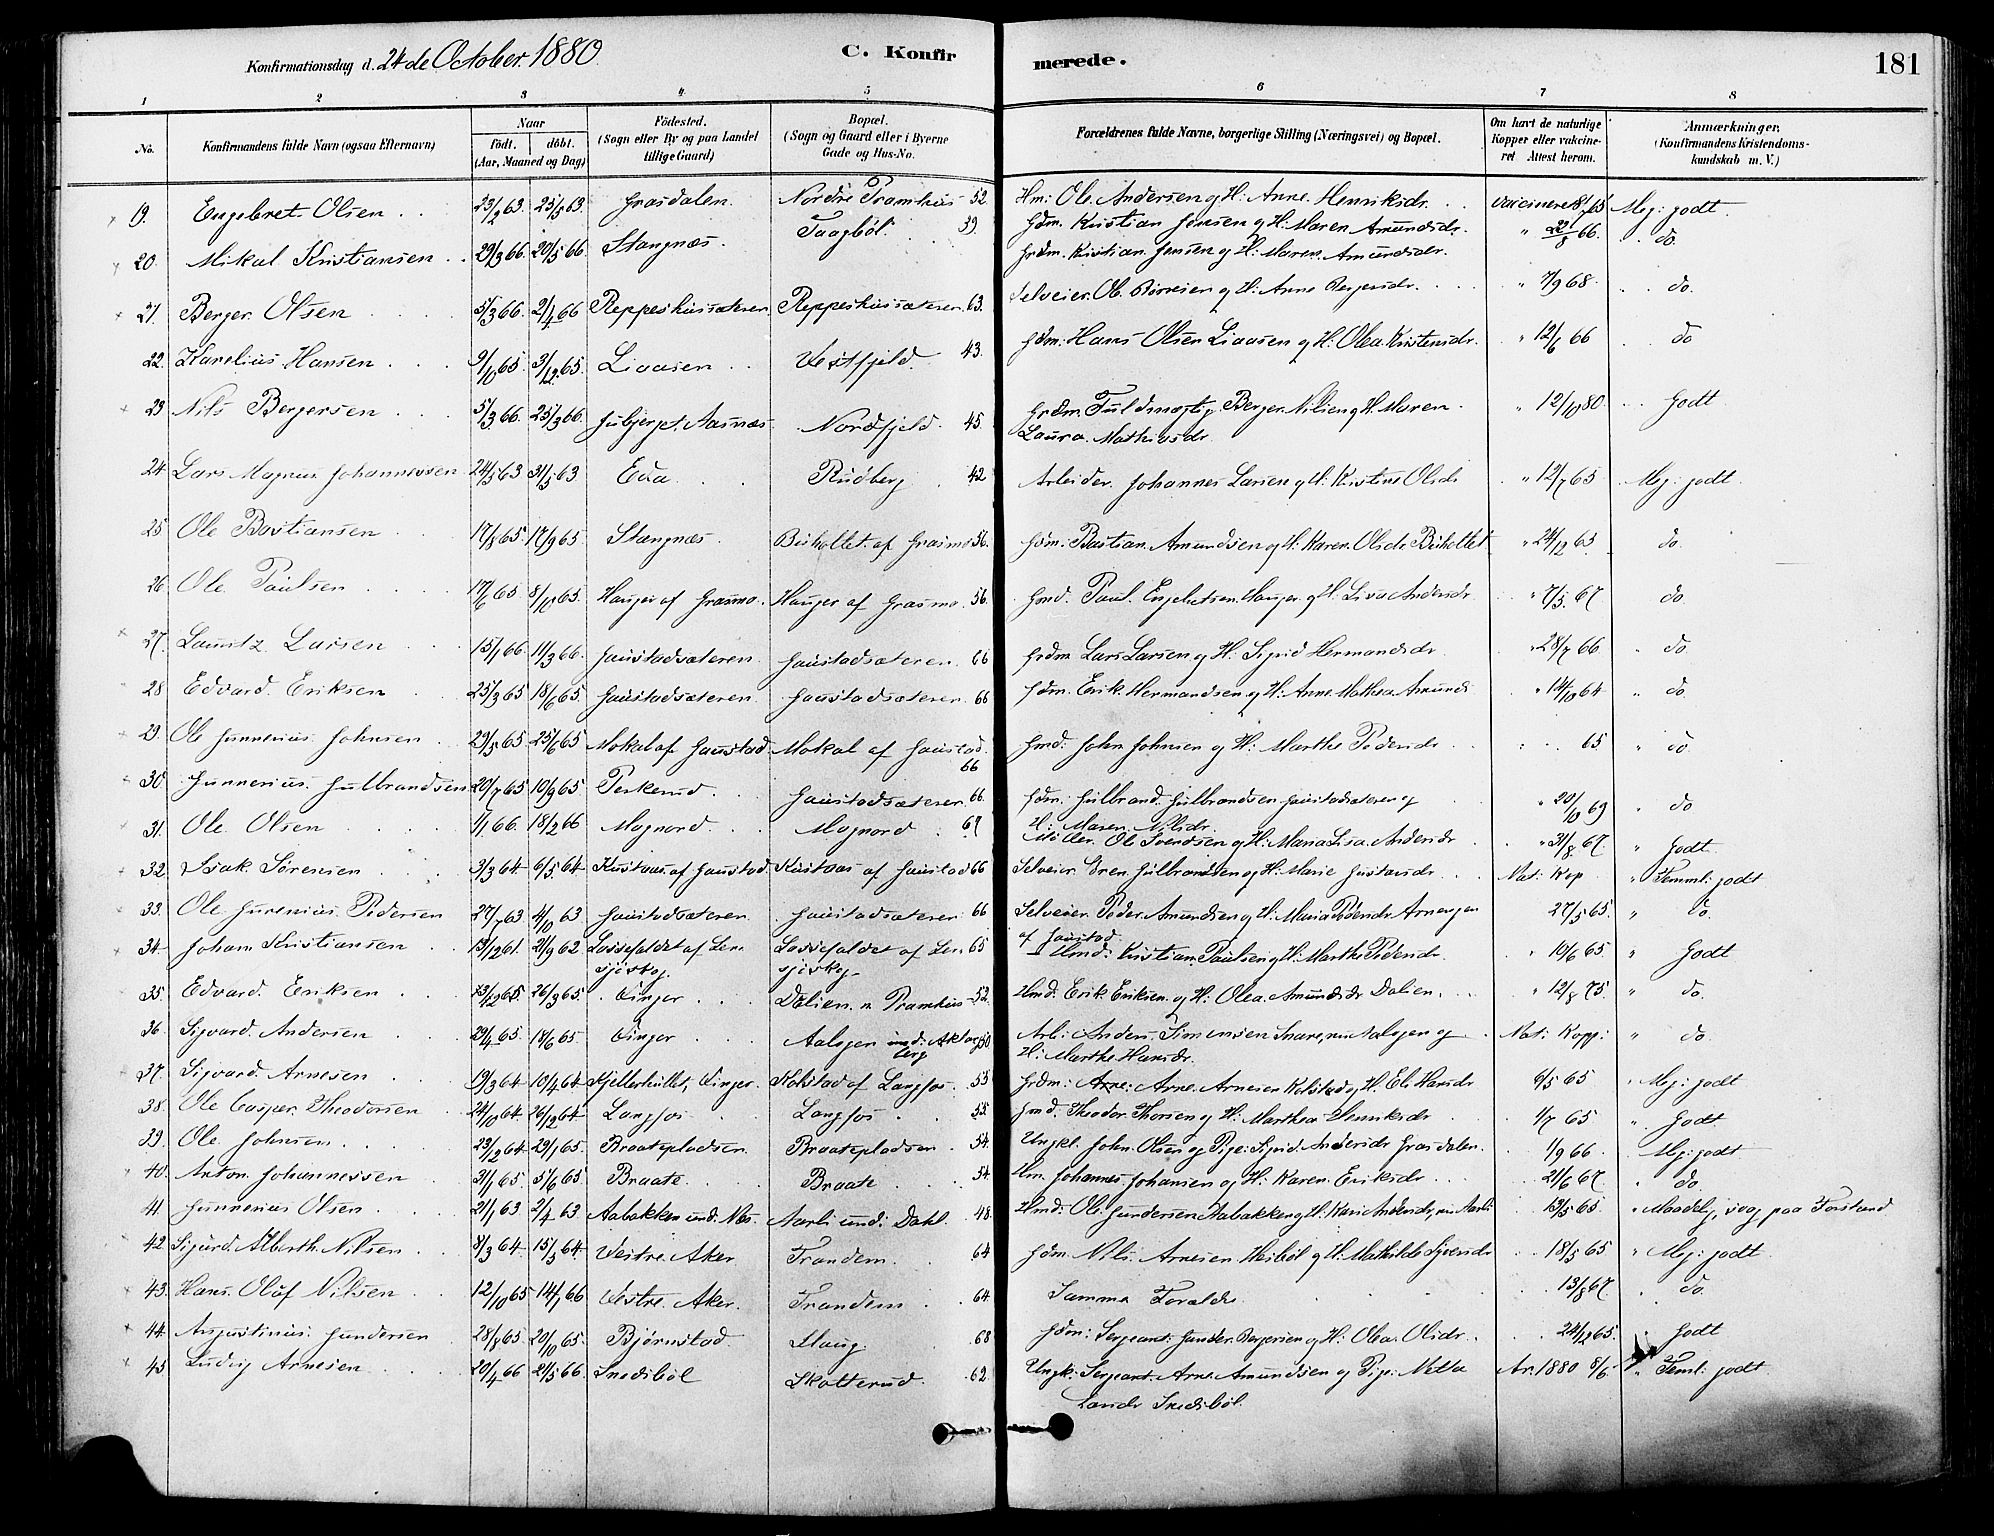 Konfirmationsdag d. 24de October 1880. C. Konfir merede. 181
1 2 3 4 5 6 7 8
No. Konfirmandens fulde Navn (ogsaa Efternavn) Naar födt. döbt. (Aar, Maaned og Dag) Födested. (Sogn eller By og paa Landet tillige Gaard) Bopæl. (Sogn og Gaard eller i Byerne Gade og Hus-No. Forældrenes fulde Navne, borgerlige Stilling (Næringsvei) og Bopæl. Om havt de naturlige Kopper eller vakcineret Attest herom. Anmærkninger. (Konfirmandens Kristendomskundskab m. V.)
19. Engebret Olsen 23/2 63. 25/5 63. Grasdalen. Nordre Pramhus 52 Hm: Ole Andersen og H: Anne Henriksdr. vaccineret Meg: godt.
20. Mikal Kristiansen 29/3 66. 20/5 66 Stangnæs. Taagböl 39. Grdm. Kristian Jensen og H: Maren Amundsdr. " 22/8 66. do.
Grdm. Kristian Jensen og H: Maren Amundsdr.
21. Berger Olsen 5/3 66. 2/4 66 Reppeshussæteren Reppeshussæteren. 63. Selveier. Ole Börresen og H: Anne Bergersdr. " 7/9 68 do.
22. Karelius Hansen 9/10 65 3/12 65. Liaasen Vestfjeld. 43. Gdm: Hans Olsen Liaasen og H: Olea Kristensdr. " 12/6 66 do
23 Nils Bergersen 5/3 66. 25/3 66 Aasnæs Nordfjeld. 45. Grdm. Fuldmægtig Berger Nilsen og H. Maren " 12/10 80. Godt
Laura Mathiasdr
24. Lars Magnus Johannessen 24/5 63 31/5 63 Eda Rudberg 42 Arbeider Johannes Larsen og H: Kristine Olsdr " 12/7 65 Meg: godt
25. Ole Bastiansen 17/8 65. 17/9 65 Stangnæs. Buhollet af Grasmo 56. Gdm: Bastian Amundsen og H: Karen Olsdr. Buhollet " 24/12 65 do.
26. Ole Paulsen 17/6 65 8/10 65. Hauger af Grasmo. Hauger af Grasmo. 56. Gmd. Paul Engebretsen Hauger og H: Lisa Andersdr " 7/5 67 do.
27. Lauritz Larsen 15/1 66. 11/3 66. Gaustadsæteren. Gaustadsæteren. 66 Grdm. Lars Larsen og H: Sigrid Hermandsdr. " 28/7 66 " do
28 Edvard Eriksen 25/3 65 18/6 65. Gaustadsæteren Gaustadsæteren. 66 Gdm. Erik Hermandsen og H: Anne Mathea Amunds " 14/10 64 " do.
29. Ole Gunnerius Johnsen 29/5 65 25/6 65 Mokal af Gaustad Mokal af Gaustad. 66 Gmd: John Johnsen og H: Marthe Pedersdr 65 " do.
30. Gunnerius Gulbrandsen 20/7 65 10/9 65 Perkerud Gaustadsæteren. 66. Gdm: Gulbrand Gulbrandsen Gaustadsæteren og " 20/10 69 " do
H: Maren Nilsdr.
31. Ole Olsen 1/1 66. 18/2 66 Magnord. Magnord 67 Möller. Ole Svendsen og H: Maria Lisa Andersdr " 31/8 67. " Godt
32. Isak Sörensen 3/3 64 6/5 64 Kustaas af Gaustad. Kustaas af Gaustad 66 Selveier Sören Gulbrandsen og H: Marie Gustavsdr. Nat: Kop. " Temml: godt
33. Ole Gunerius Pedersen 27/7 63 4/10 63 Gaustadsæteren Gaustadsæteren 66 Selveier Peder Amundsen og H: Maria Pedersdr 27/5 65. " Do.
af Gaustad.
34. Johan Kristiansen 13/12 61. 21/9 62 Lossefaldet af Lersjöskog. Lossefaldet af Lersjöskog 65 Hmd: Kristian Paulsen og H: Marthe Pedersdr. " 10/6 65. " Godt
35. Edvard Eriksen 23/2 65. 26/3 65. Vinger Dalien. n. Pramhus 52. Hmd. Erik Eriksen og H: Olea Amundsdr Dalien. " 12/8 75. " do.
36. Sigvard Andersen 29/4 65. 18/6 65. Vinger 50 Arb: Anders Simensen og Nat: Kopp: " do.
H: Marthe Hansdr.
37. Sigvard Arnesen 19/3 64 10/4 64 Kjellerhullet, Vinger. Kolstad af Langfos. 55 Grdm: Arne: Arne Arnesen Kolstad og H. Eli Hansdr 6/5 65 " Meg: godt
38. Ole Casper Theodorsen 24/10 64. 26/12 64 Langfos Langfos 55. Gmd. Theodor Thorsen og H: Marthea Henriksdr 1/7 65 " Godt
39. Ole Johnsen 23/12 64 29/1 65. Braatepladsen Braatepladsen 54. Ungkl. John Olsen og Pige Sigrid Andersdr Grasdalen 1/9 66 Meg: godt
40. Anton Johannessen 31/1 65 5/6 65 Braate. Braate 54. Hm. Johannes Johansen og H: Karen Eriksdr 21/6 67. do.
41. Gunnerius Olsen 21/1 63 2/4 63. Aabakken und. Næs. Aarli und. Dahl. 48. Hmd: Ole Gundersen Aabakken og H. Kari Andersdr, nu Aarli 13/5 65. " Maadelig, svag paa Forstand
42. Sigurd Alberth Nilsen 8/3 64. 15/5 64. Vestre Aker Trandem. 64 Gdm. Nils Arnesen og H. Mathilde Syversdr 18/5 65 " Meg: godt
43. Hans Oluf Nilsen 12/10 65 14/1 66 Vestre Aker. Trandem. 64. Samme Foræld 13/8 67. " do.
44. Augustinus Gundersen 28/8 65 20/10 65. Björnstad Haug. 68 Gdm: Sergeant: Gunder Bergersen og H: Olea Olsdr. 24/12 65. " Godt
45 Ludvig Arnesen 20/4 66 21/5 66. Snedsböl Skotterud. 62. Ungk: Sergeant. Arne Amundsen og Pige: Netta Ar. 1880 8/6 " Teml: godt
Larsdr Snedsböl.